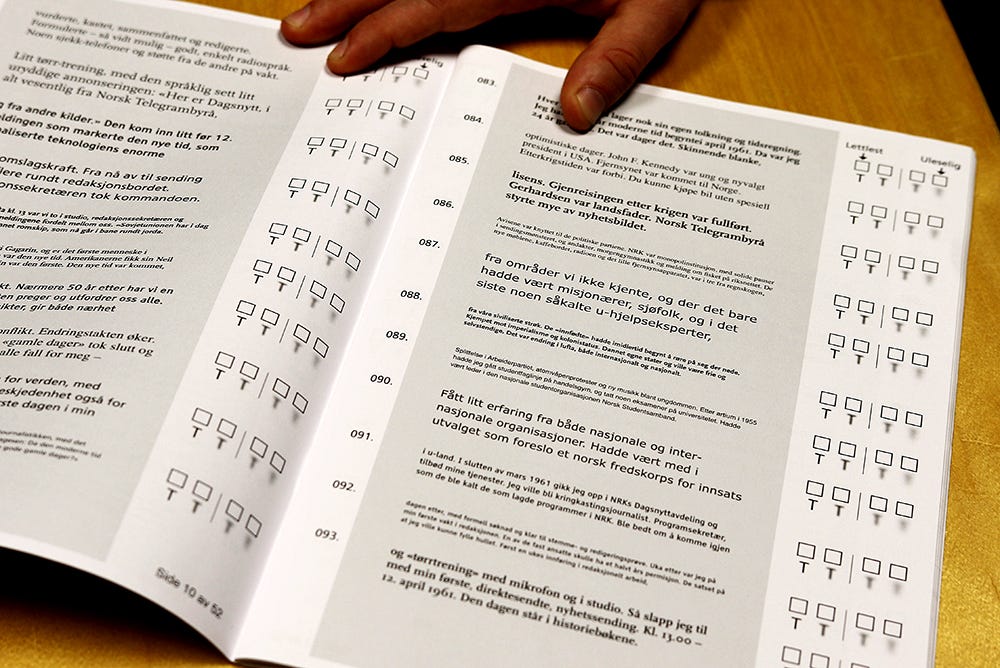 vurderte, kastet, sammenfattet og redigerte.
Formulerte – så vidt mulig – godt, enkelt radiospråk.
Noen sjekk-telefoner og støtte fra de andre på vakt.
Litt tørr-trening, med den språklig sett litt
uryddige annonseringen: «Her er Dagsnytt, i
alt vesentlig fra Norsk Telegrambyrå,
og fra andre kilder.» Den kom inn litt før 12.
meldingen som markerte den nye tid, som
teknologiens enorme
omslagskraft. Fra nå av til sending
rundt redaksjonsbordet.
tok kommandoen.
kl. 13 var vi to i studio, redaksjonssekretæren og
fordelt mellom oss. «Sovjetunionen har i dag
romskip, som nå går i bane rundt jorda.
Gagarin, og er det første menneske i
var den nye tid. Amerikanerne fikk sin Neil
var den første. Den nye tid var kommet,
Nærmere 50 år etter har vi en
preger og utfordrer oss alle.
gir både nærhet
Endringstakten øker.
«gamle dager» tok slutt og
alle fall for meg –
for verden, med
også for
dagen i min
med det
De den moderne tid
gode gamle dager?»
T T T T
Side 10 av 52
083.
084.
085.
086.
087.
088.
089.
090.
091.
092.
093.
lager nok sin egen tolkning og tidsregning.
moderne tid begynte i april 1961. Da var jeg
24 år Det var dager det. Skinnende blanke,
optimistiske dager. John F. Kennedy var ung og nyvalgt
president i USA. Fjernsynet var kommet til Norge.
Etterkrigstiden var forbi. Du kunne kjøpe bil uten spesiell
lisens. Gjenreisingen etter krigen var fullført.
Gerhardsen var landsfader. Norsk Telegrambyrå
styrte mye av nyhetsbildet.
Avisene var knyttet til de politiske partiene. NRK var monopolinstitusjon, med solide pauser
i sendingsmønsteret, og andakter, morgengymnastikk og melding om fisket på riksnettet. De
nye møblene, kaffebordet, radioen og det lille fjernsynsapparatet, var i tre fra regnskogen,
fra områder vi ikke kjente, og der det bare
hadde vært misjonærer, sjøfolk, og i det
siste noen såkalte u-hjelpseksperter,
fra våre siviliserte strøk. De «innfødte» hadde imidlertid begynt å røre på seg der nede.
Kjempet mot imperialisme og kolonistatus. Dannet egne stater og ville være frie og
selvstendige. Det var endring i lufta, både internasjonalt og nasjonalt.
Splittelse i Arbeiderpartiet, atomvåpenprotester og ny musikk blant ungdommen. Etter artium i 1955
hadde jeg gått studentlinje på handelsgym, og tatt noen eksamener på universitetet. Hadde
vært leder i den nasjonale studentorganisasjonen Norsk Studentsamband.
Fått litt erfaring fra både nasjonale og inter-
nasjonale organisasjoner. Hadde vært med i
utvalget som foreslo et norsk fredskorps for innsats
i u-land. I slutten av mars 1961 gikk jeg opp i NRKs Dagsnyttavdeling og
tilbød mine tjenester. Jeg ville bli kringkastingsjournalist. Programsekretær,
som de ble kalt de som lagde programmer i NRK. Ble bedt om å komme igjen
dagen etter, med formell søknad og klar til stemme- og redigeringsprøve. Uka etter var jeg på
min første vakt i redaksjonen. En av de fast ansatte skulle ha et halvt års permisjon. De satset på
at jeg ville kunne fylle hullet. Først en ukes innføring i redaksjonelt arbeid,
og «tørrtrening» med mikrofon og i studio. Så slapp jeg til
med min første, direktesendte, nyhetssending. Kl. 13.00 –
12. april 1961. Den dagen står i historiebøkene.
Lettlest Uleselig
T T T T